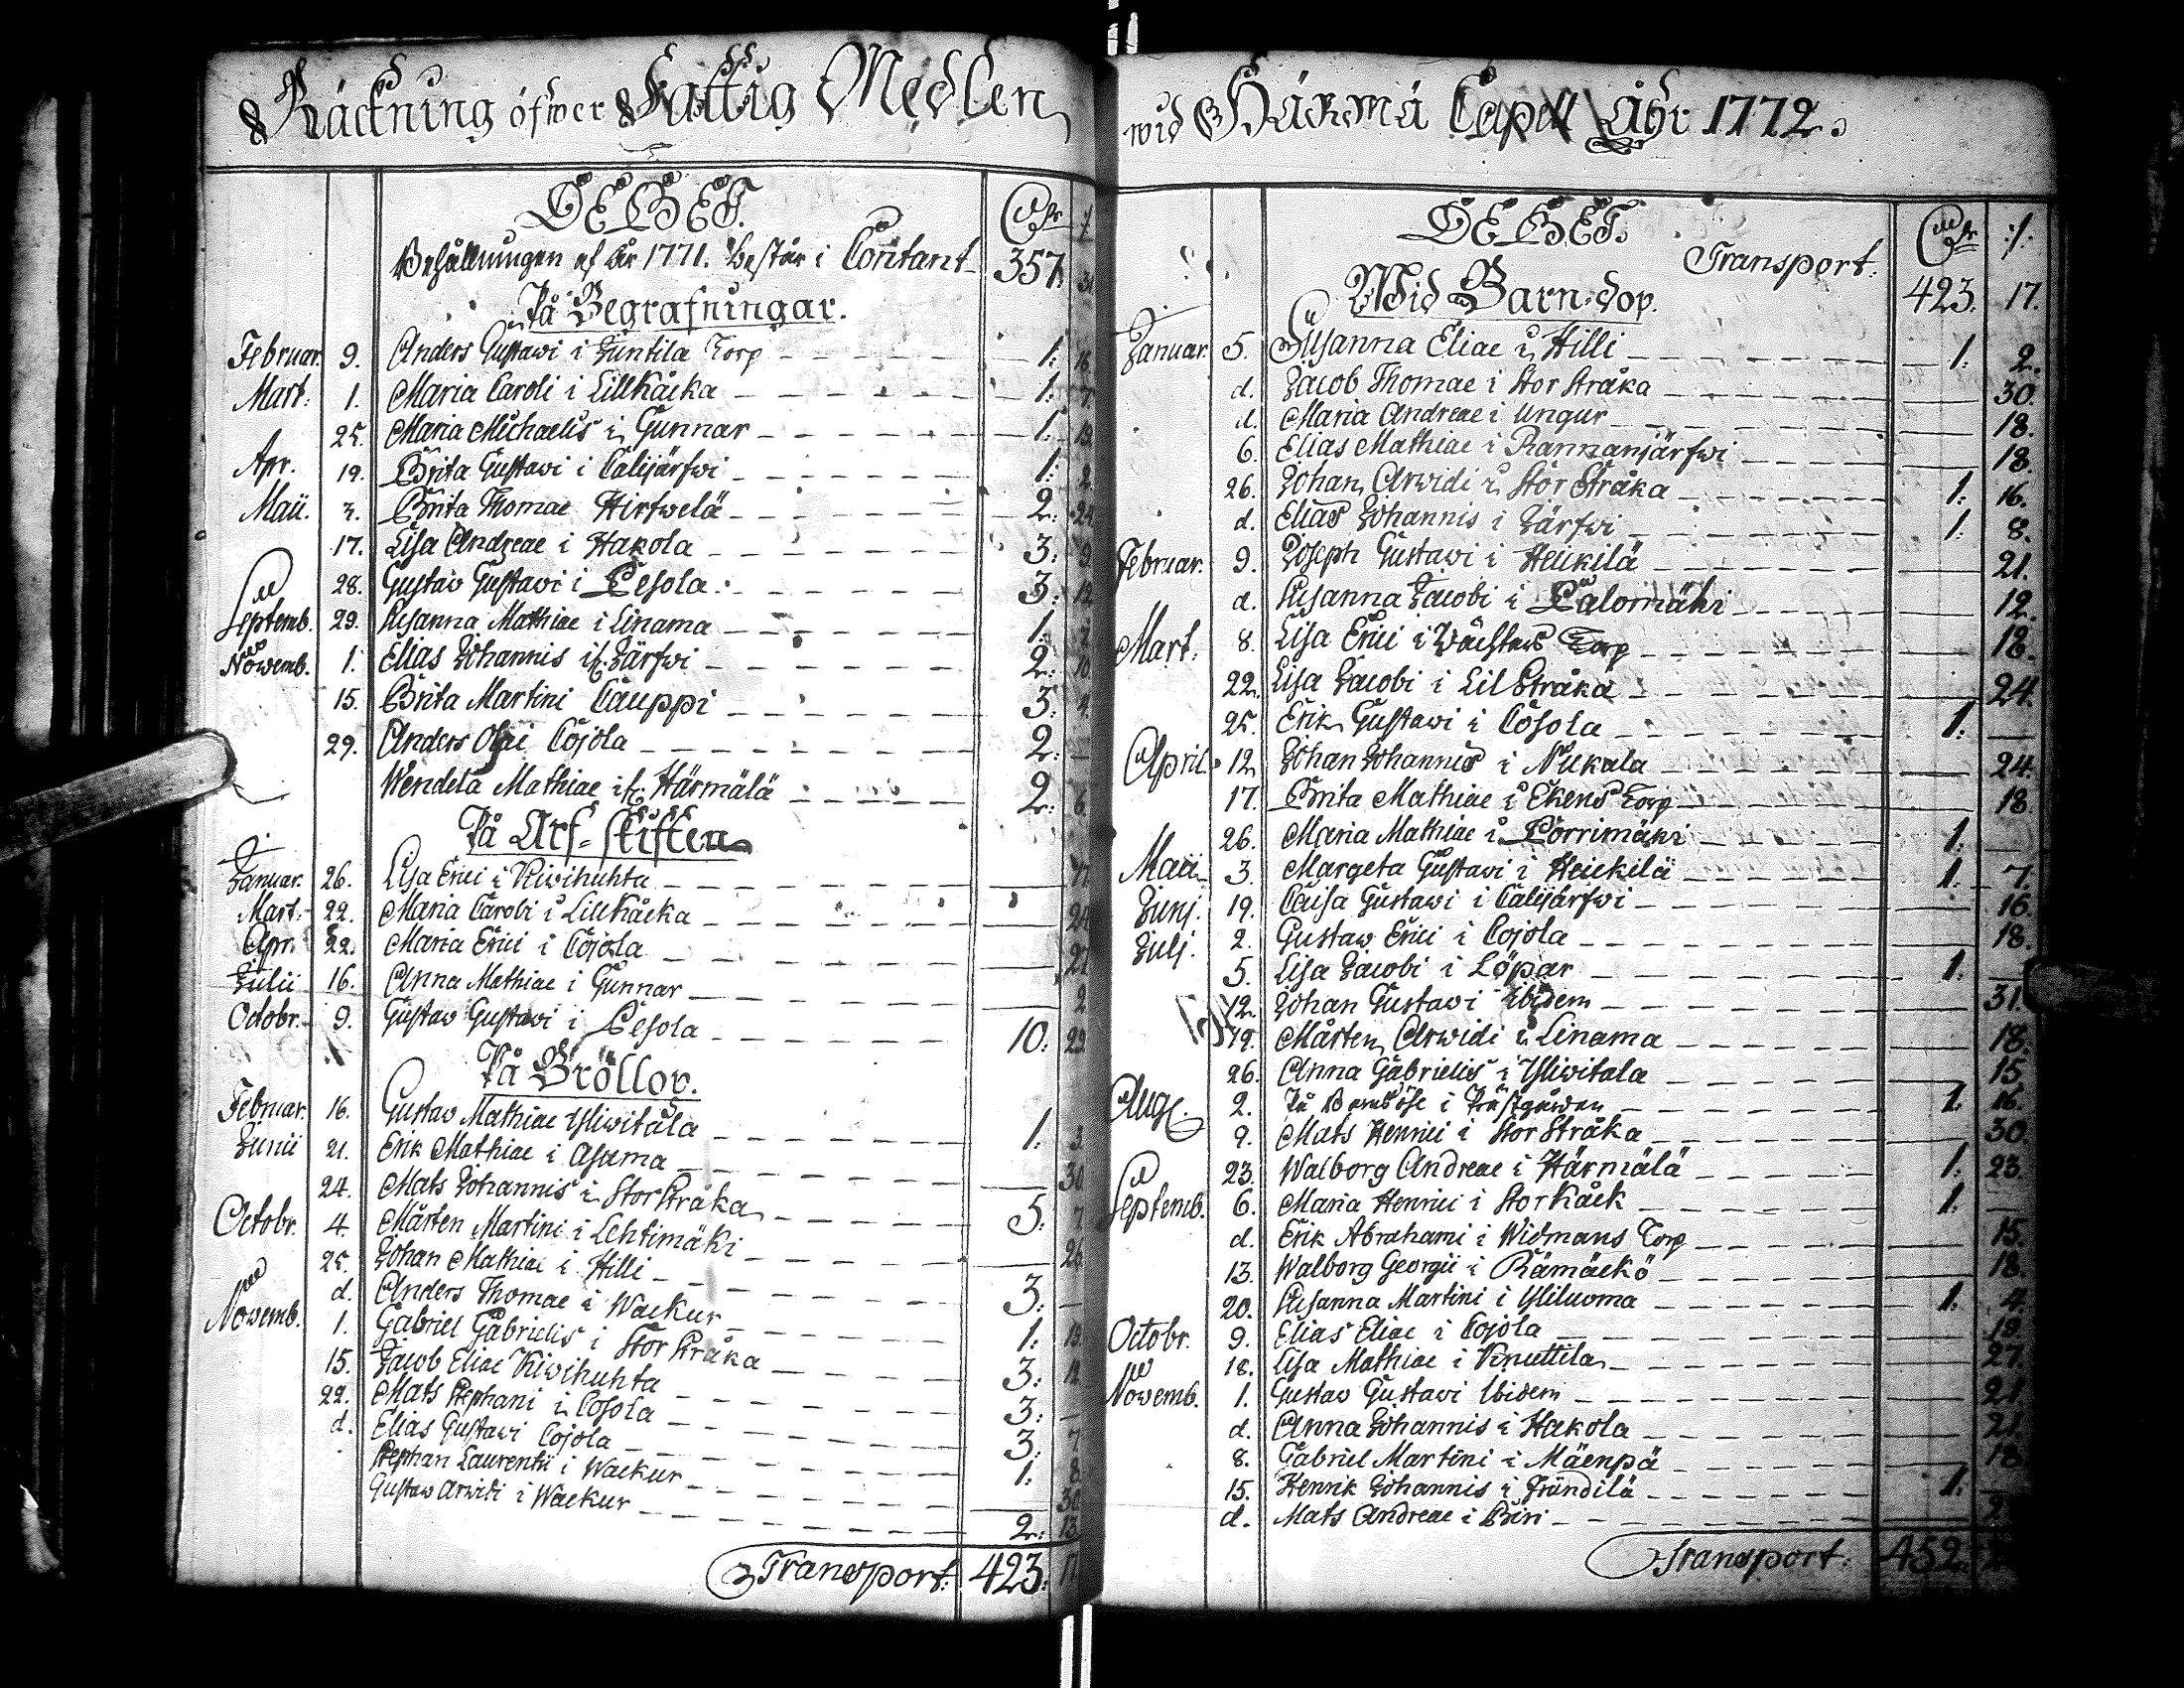 Räckning öfwer Fattig Medlen
DEBET.
Behållningen af år 1771. består i Contant 357. 31.
På Begrafningar.
Februar. 9. Anders Gustawi i Luntila Torp 1. 16.
Mart. 1. Maria Caroli i Lillkåcka 1. 7.
25. Maria Michaelis i Gunnar 1. 19.
Apr. 19. Brita Gustawi i Calijärfwi 1. 2.
Maii. 3. Brita Thomae Hirfwelä 2. 24.
17. Lisa Andreae i Hakola 3. 9.
28. Gustaw Gustawi i Pesola 3. 12.
Septemb. 29. Susanna Mathiae i Linama 1.
Nowemb. 1. Elias Johannis if. Järfwi 2. 10.
15. Brita Martini Cauppi 3. 4.
29. Anders Olai Cojola 2. —
Wendela Mathiae if. Härmälä 2. 6.
På Arf-skiften
Januar. 26. Lisa Erici i Kiwihuhta — 17.
Mart. 22. Maria Carobi i Lillkåcka — 24.
Apr. 22. Maria Erici i Cojola — 27.
Julii 16. Anna Mathiae i Gunnar — 2
Octobr. 9. Gustaw Gustawi i Pesola 10. 29.
På Bröllop.
Februar. 16. Gustaw Mathiae Yliwitala 1. 3.
Junii 21. Erik Mathiae i Asuma — 30.
24. Mats Johannis i Stor Stråka 5. 7.
Octobr. 4. Mårten Martini i Lehtimäki — 26.
25. Johan Mathiae i Hilli 3. —
d. Anders Thomae i Wackur 1. 19.
Nowemb. 1. Gabriel Gabrielis i Stor Stråka 3. 12.
15. Jacob Eliae Kiwihuhta 3. —
22. Mats Stephani i Cosola 3. 7.
d. Elias Gustawi Cojola 1. 8.
Stephan Laurentii i Wackur — 30.
Gustaw Arwidi i Wackur 2. 13.
Transport. 423. 17.
wid Härmä Capell Åhr 1772.
DEBET.
Transport. 423. 17.
Wid Barn-dop.
Januar. 5. Susanna Eliae i Hilli 1. 2.
d. Jacob Thomae i Stor Stråka — 30.
d. Maria Andreae i Ungur — 18.
6. Elias Mathiae i Rannanjärfwi — 18.
26. Johan Arwidi i Stor Stråka 1. 16.
d. Elias Johannis i Järfwi 1. 8.
Februar. 9. Joseph Gustawi i Heickilä — 21.
d. Susanna Jacobi i Palomäki — 12.
Mart. 8. Lisa Erici i Wächters Torp — 18.
22. Lisa Jacobi i Lil Stråka — 24.
25. Erik Gustawi i Cosola 1. —
April. 12. Johan Johannis i Nukala — 24.
17. Brita Mathiae i Ekens Torp — 18.
26. Maria Mathiae i Porrimäki 1. —
Maii 3. Margeta Gustawi i Heickilä 1. 7.
Junj. 19. Caisa Gustawi i Calijärfwi — 16.
Julj. 2. Gustaw Erici i Cojola — 18.
5. Lisa Jacobi i Löpar 1. —
12. Johan Gustawi Ibidem — 31.
19. Mårten Arwidi i Linama — 18.
26. Anna Gabrielis i Yliwitala — 15.
Aug. 2. På Barnsöhl i Prästgården 1. 16.
9. Mats Henrici i Stor Stråka — 30.
23. Walborg Andreae i Härmälä 1. 23.
Septemb. 6. Maria Henrici i Storkåck 1. —
d. Erik Abrahami i Widmans Torp — 15.
13. Walborg Georgii i Rämäckö — 18.
20. Susanna Martini i Yliluoma 1. 4.
Octobr. 9. Elias Eliae i Cojola — 18.
18. Lisa Mathiae i Knuttila — 27.
Nowemb. 1. Gustaw Gustawi Ibidem — 21.
d. Anna Johannis i Hakola — 21.
8. Gabriel Martini i Mäenpä — 18.
15. Henrik Johannis i Frändilä 1. —
d. Mats Andreae i Biri
Transport. 452.